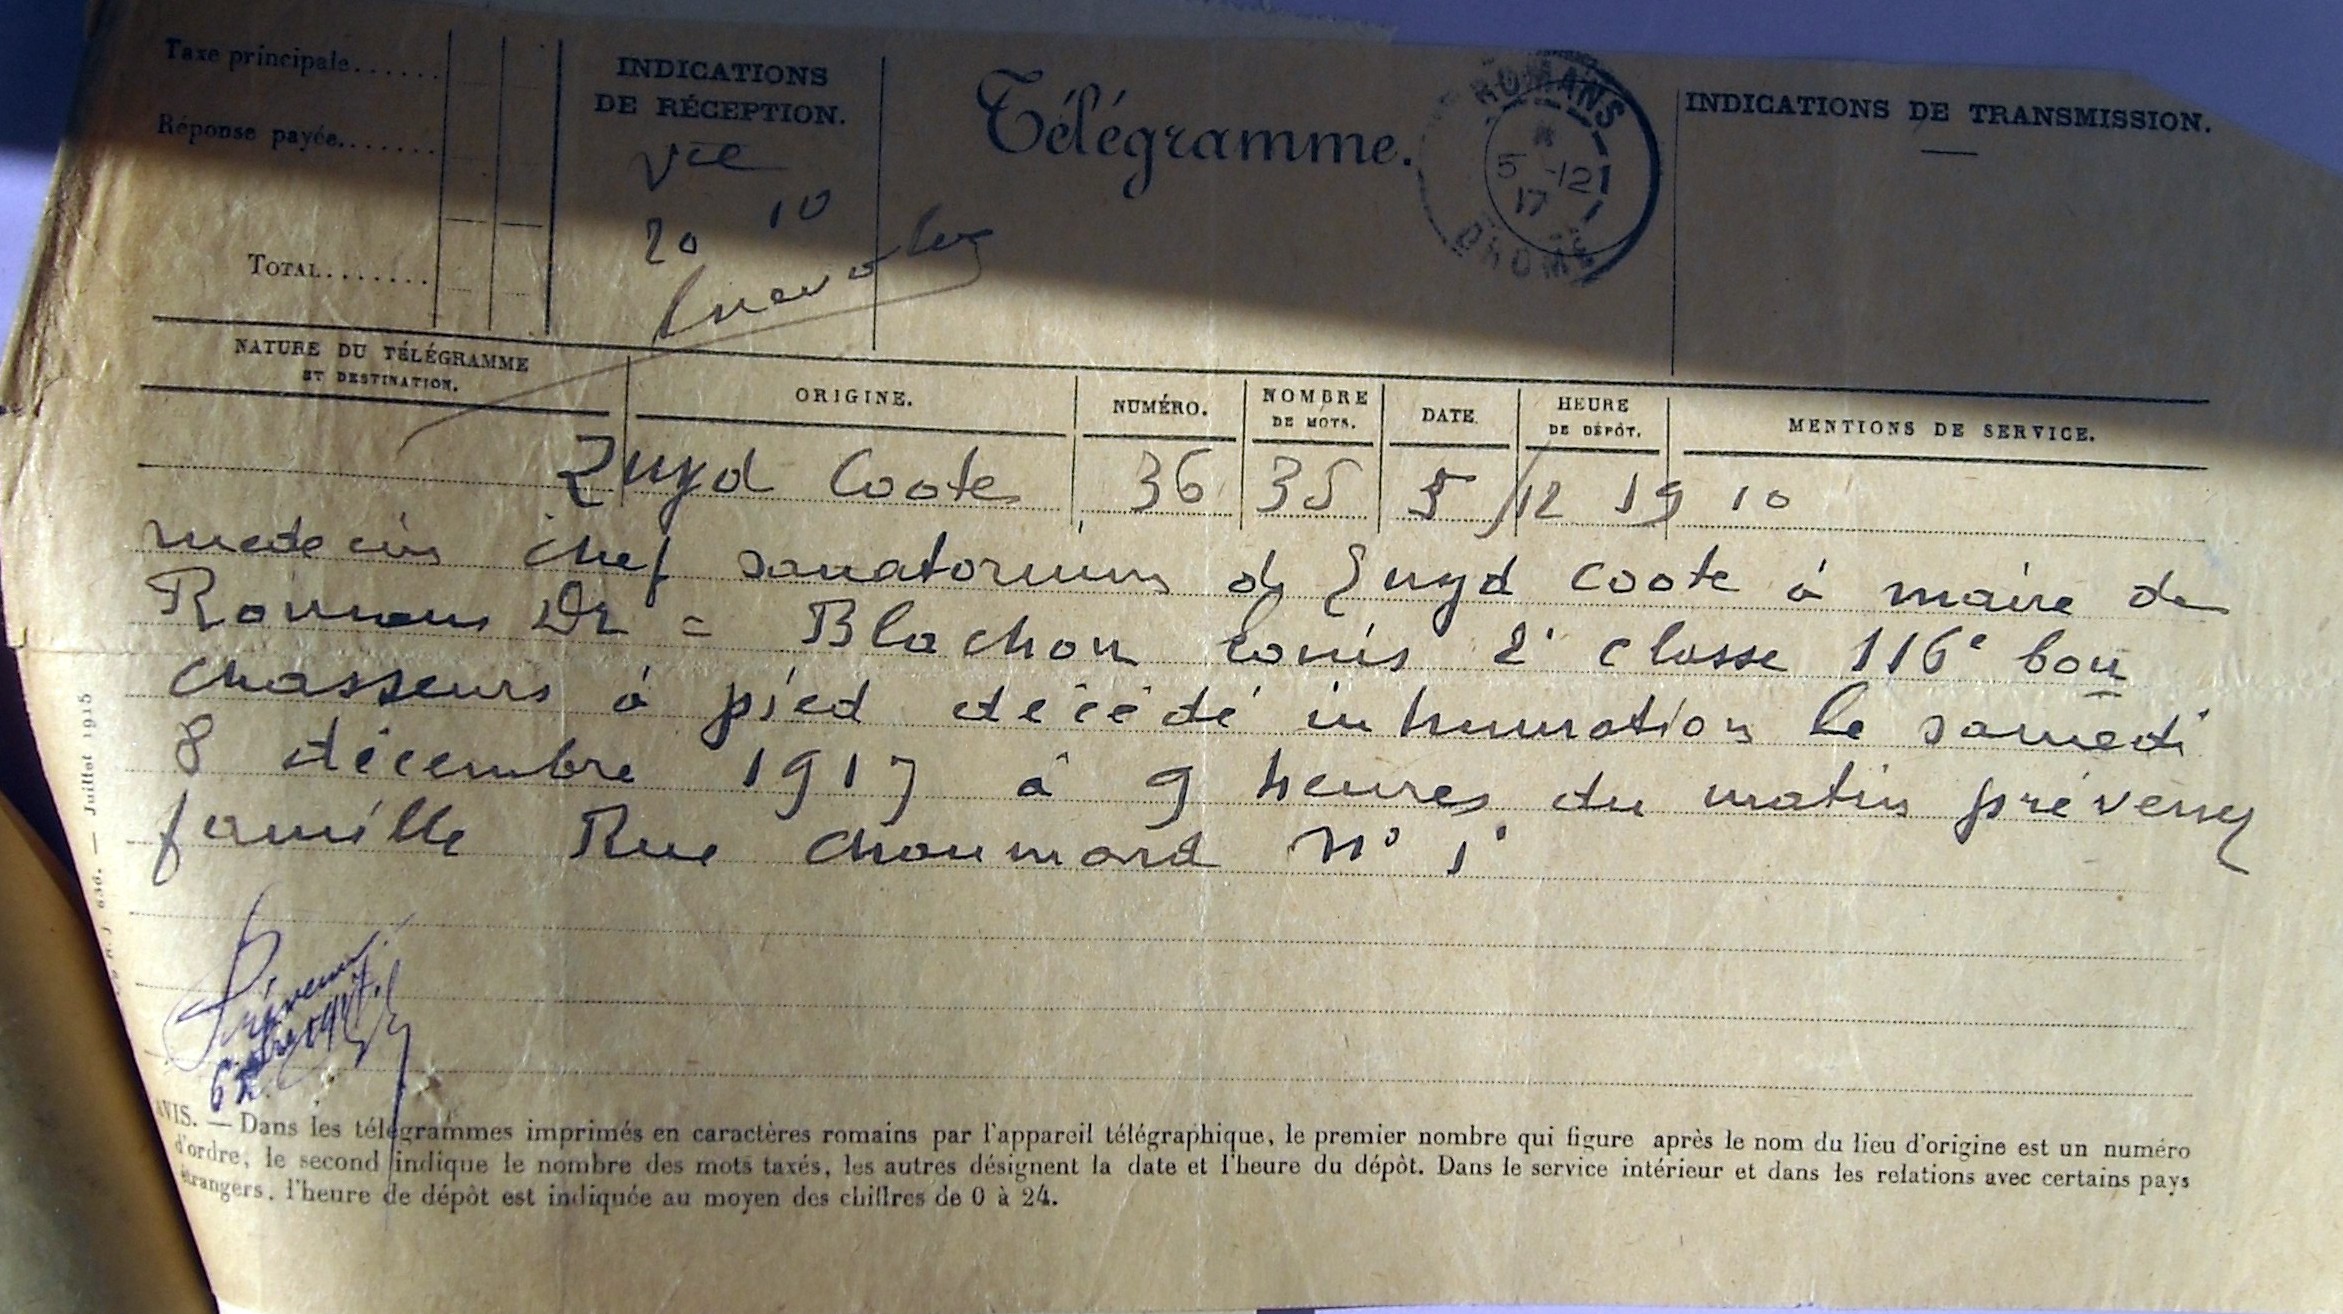 Taxe principale......
Réponse payée.......
TOTAL.......
INDICATIONS
DE RÉCEPTION.
20 10
Télégramme.
ROMANS
5 -12
17
DROME
INDICATIONS DE TRANSMISSION.
NATURE DU TÉLÉGRAMME
ET DESTINATION.
ORIGINE.
NUMÉRO.
NOMBRE
DE MOTS.
DATE.
HEURE
DE DÉPÔT.
MENTIONS DE SERVICE.
Zuyd Coote 36 35 5/12 19 10
medecin chef sanatorium de Zuyd Coote à maire de
Romans Dr = Blachon Louis 2e classe 116e bon
chasseurs à pied décédé inhumation le samedi
8 décembre 1917 à 9 heures du matin prévenez
famille Rue Choumard N° 1
Prévenu
Juillet 1915
AVIS. — Dans les télégrammes imprimés en caractères romains par l'appareil télégraphique, le premier nombre qui figure après le nom du lieu d'origine est un numéro
d'ordre, le second indique le nombre des mots taxés, les autres désignent la date et l'heure du dépôt. Dans le service intérieur et dans les relations avec certains pays
étrangers, l'heure de dépôt est indiquée au moyen des chiffres de 0 à 24.